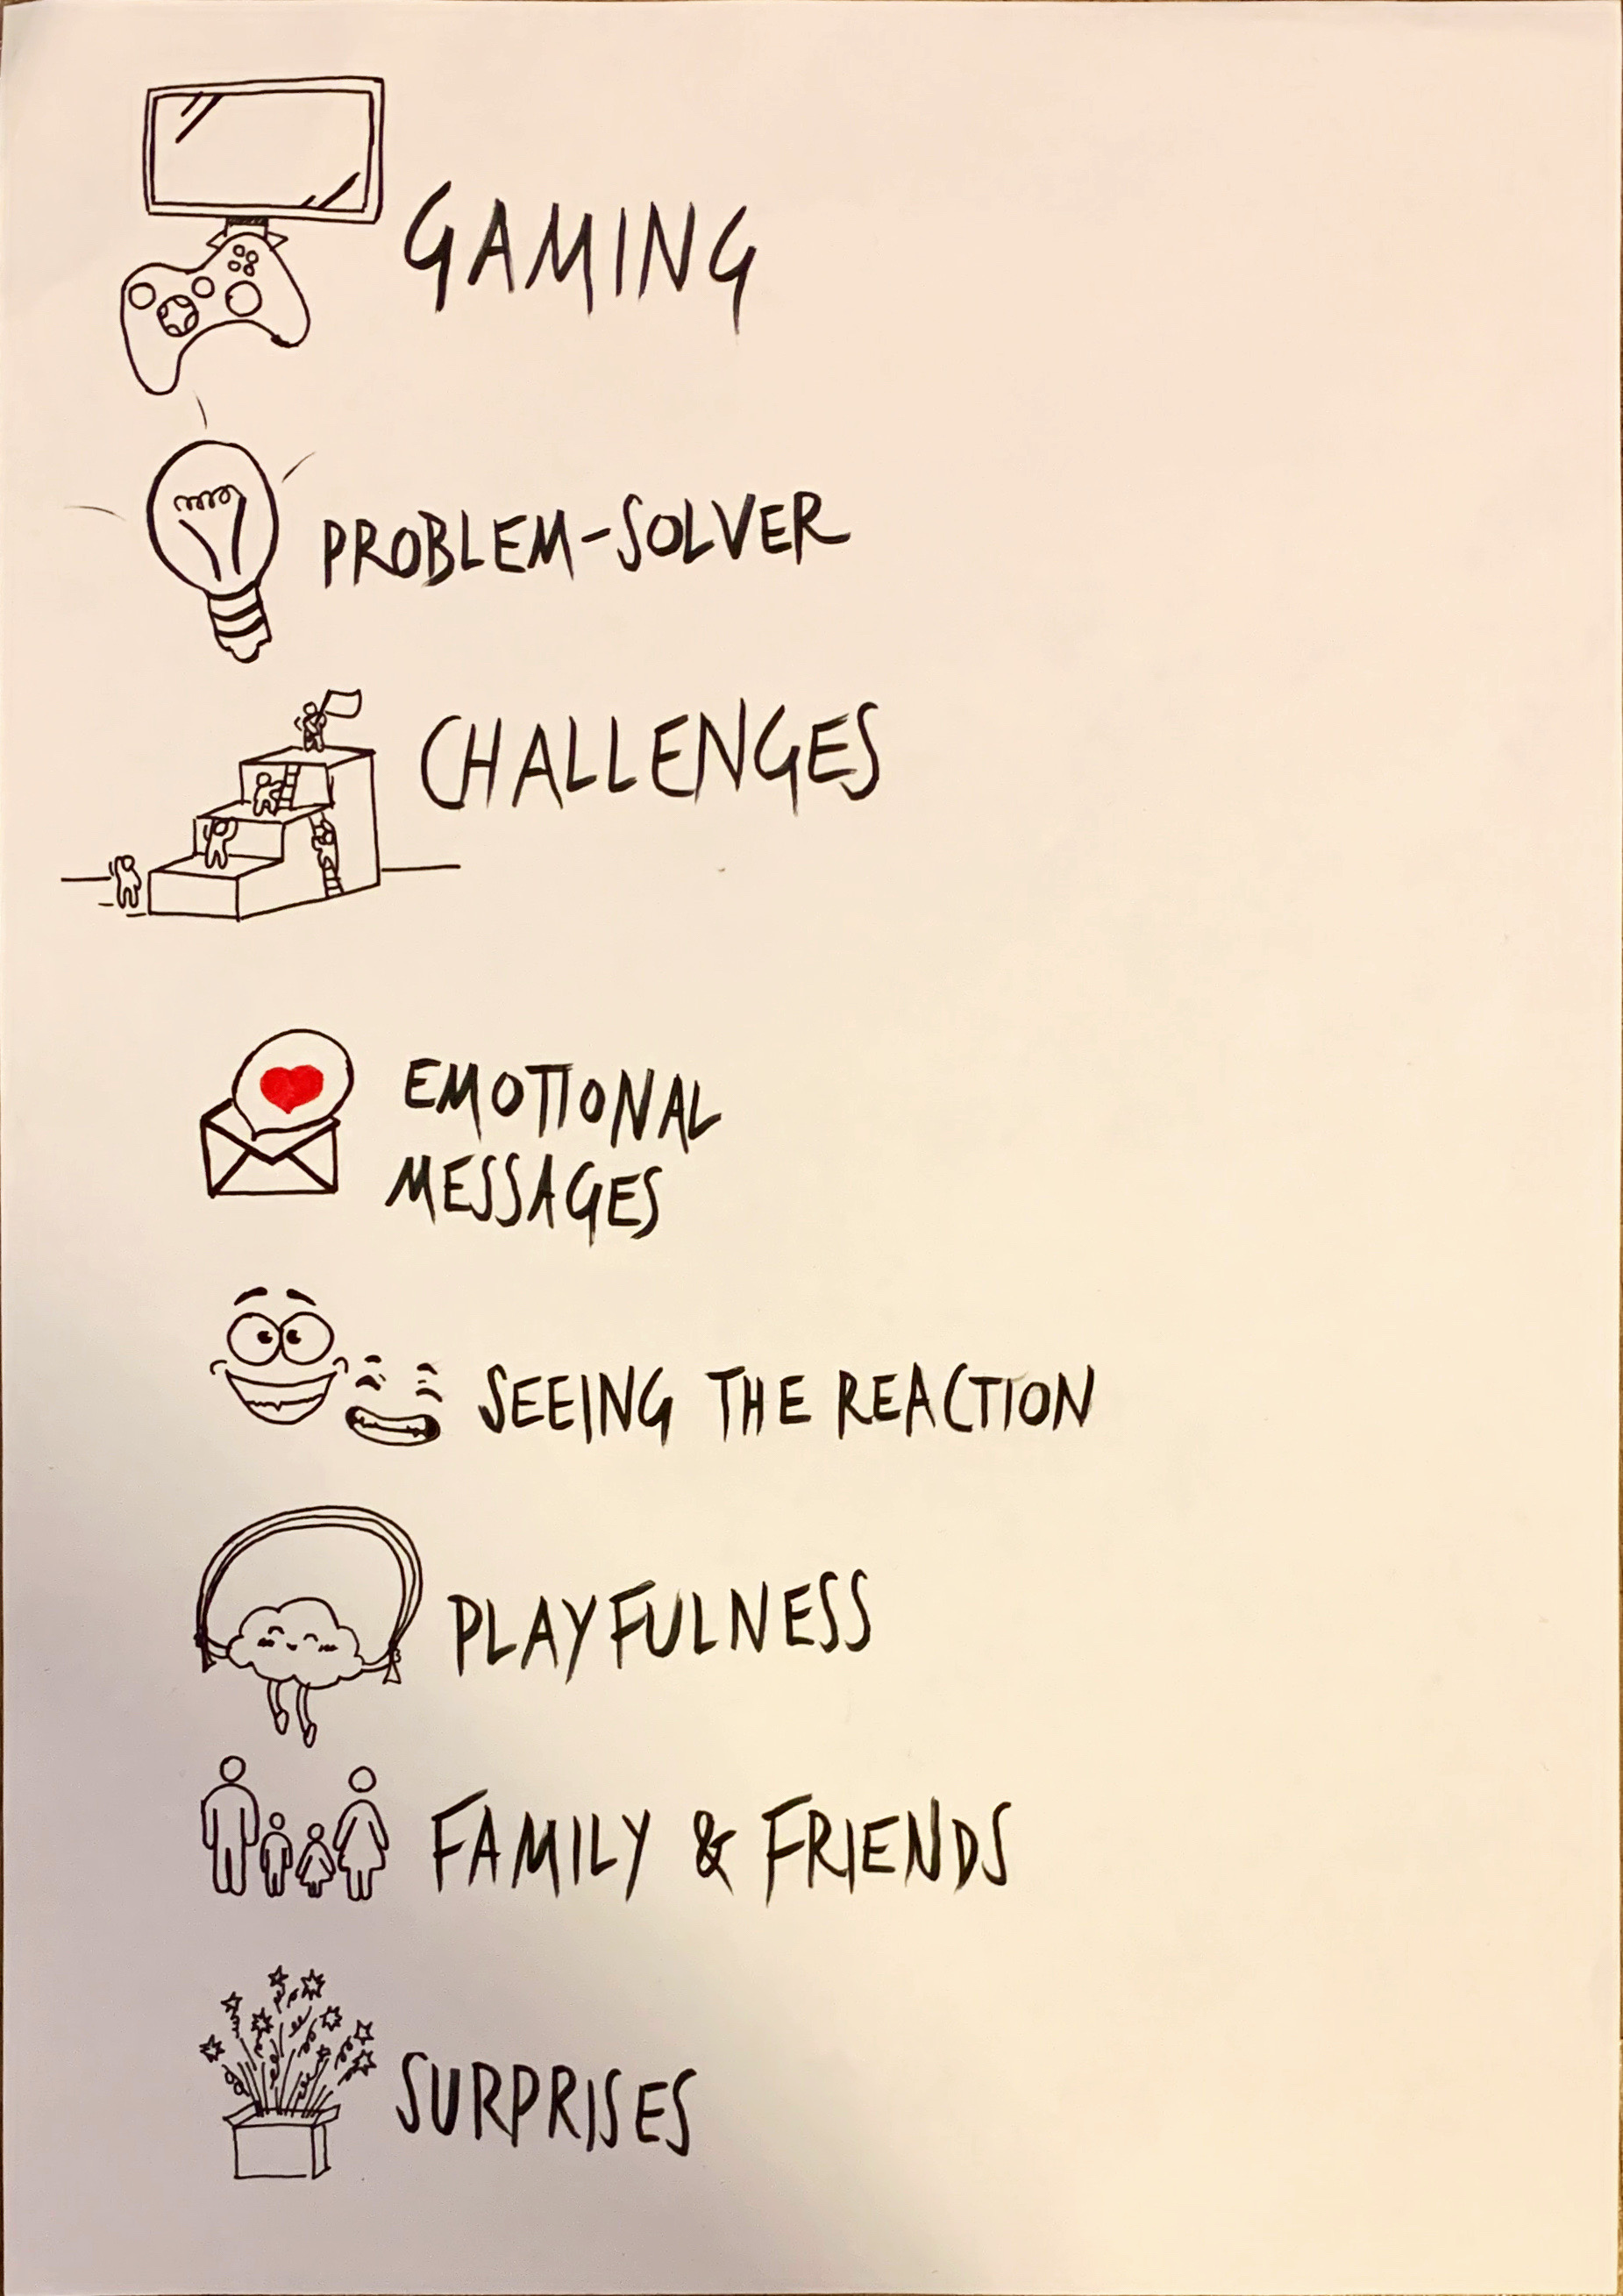 GAMING
PROBLEM-SOLVER
CHALLENGES
EMOTIONAL
MESSAGES
SEEING THE REACTION
PLAYFULNESS
FAMILY & FRIENDS
SURPRISES